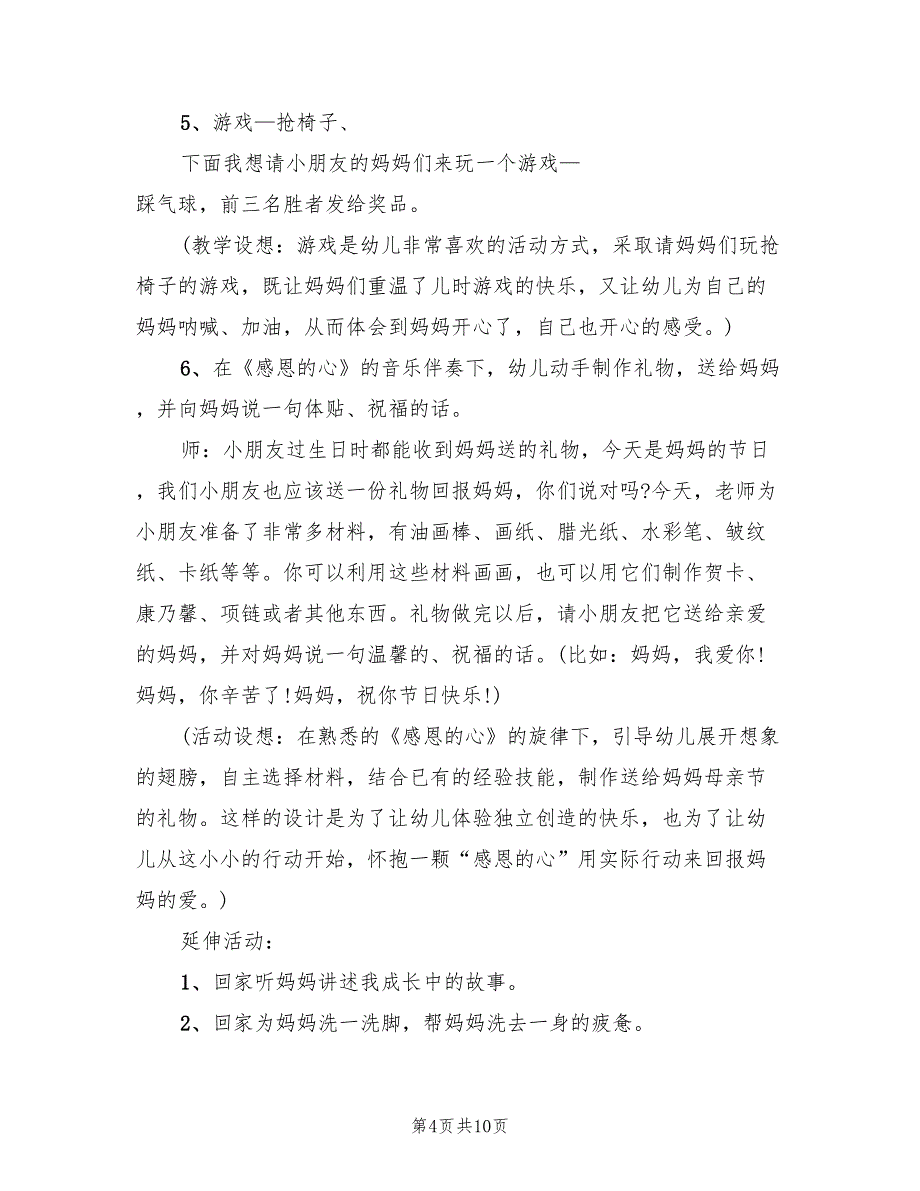 5、游戏—抢椅子、
下面我想请小朋友的妈妈们来玩一个游戏—
踩气球，前三名胜者发给奖品。
(教学设想：游戏是幼儿非常喜欢的活动方式，采取请妈妈们玩抢
椅子的游戏，既让妈妈们重温了儿时游戏的快乐，又让幼儿为自己的
妈妈呐喊、加油，从而体会到妈妈开心了，自己也开心的感受。)
6、在《感恩的心》的音乐伴奏下，幼儿动手制作礼物，送给妈妈
，并向妈妈说一句体贴、祝福的话。
师：小朋友过生日时都能收到妈妈送的礼物，今天是妈妈的节日
，我们小朋友也应该送一份礼物回报妈妈，你们说对吗?今天，老师为
小朋友准备了非常多材料，有油画棒、画纸、腊光纸、水彩笔、皱纹
纸、卡纸等等。你可以利用这些材料画画，也可以用它们制作贺卡、
康乃馨、项链或者其他东西。礼物做完以后，请小朋友把它送给亲爱
的妈妈，并对妈妈说一句温馨的、祝福的话。(比如：妈妈，我爱你!
妈妈，你辛苦了!妈妈，祝你节日快乐!)
(活动设想：在熟悉的《感恩的心》的旋律下，引导幼儿展开想象
的翅膀，自主选择材料，结合已有的经验技能，制作送给妈妈母亲节
的礼物。这样的设计是为了让幼儿体验独立创造的快乐，也为了让幼
儿从这小小的行动开始，怀抱一颗“感恩的心”用实际行动来回报妈
妈的爱。)
延伸活动：
1、回家听妈妈讲述我成长中的故事。
2、回家为妈妈洗一洗脚，帮妈妈洗去一身的疲惫。
第4页共10页